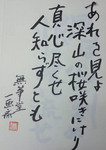 あれを見よ
深山の桜咲きけり
真心尽くせ
人知らずとも
無華堂